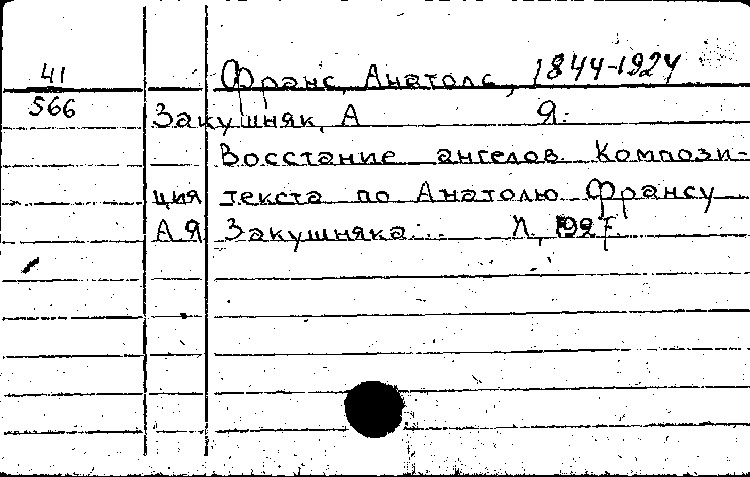 41
566
Франс, Анатоль, 1844-1924
Закушняк, А Я.
Восстание ангелов. Компози-
ция текста по Анатолю Франсу
А Я Закушняка... Л., 1927.